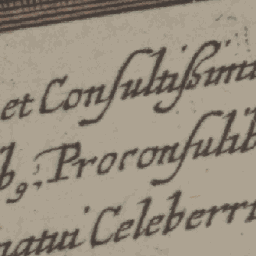 et Consultissimi
b9, Proconsulib
natui Celeberri